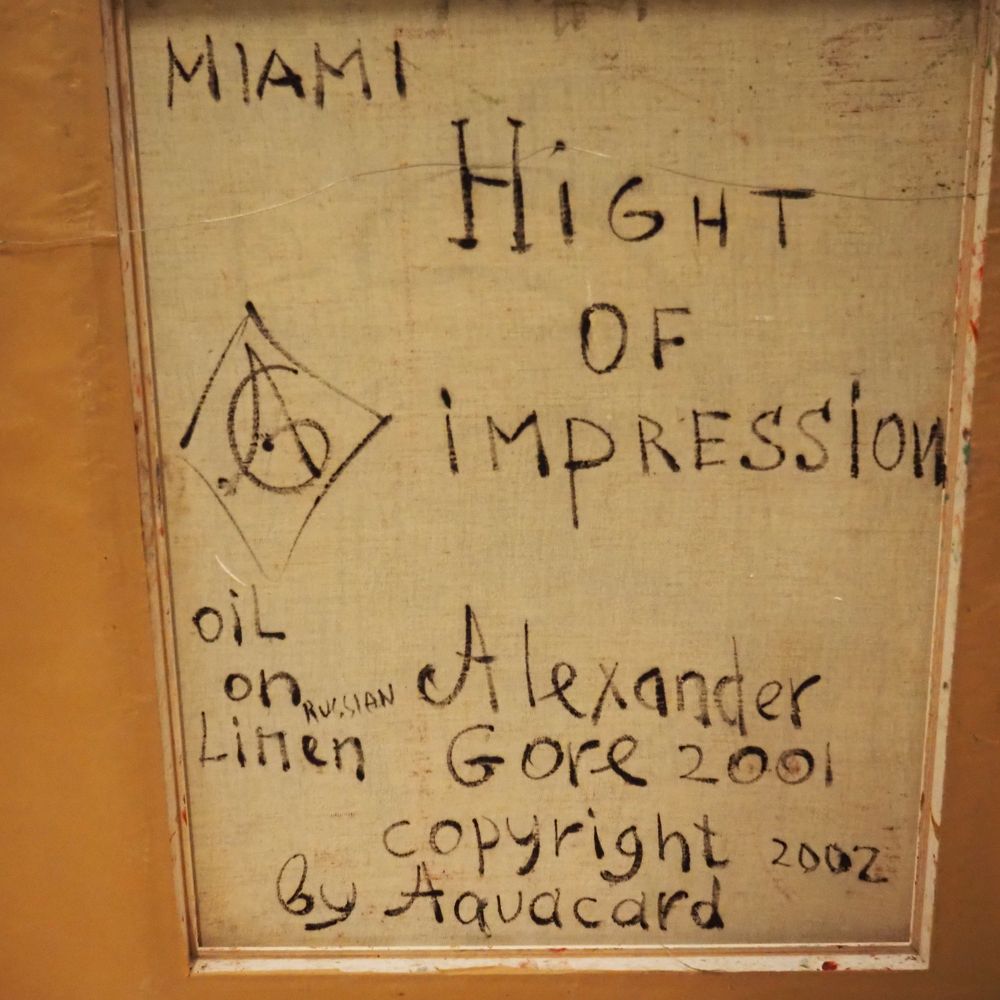 MIAMI
HiGHT
OF
iMPRESSION
OiL
on RUSSIAN
Linen
Alexander
Gore 2001
copyright 2002
by Aquacard